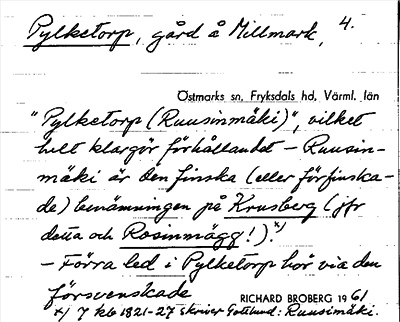 Pylketorp, gård å Millmark, 4.
Östmarks sn, Fryksdals hd, Värml. län
"Pylketorp (Ruusinmäki)", vilket
helt klargör förhållandet – Ruusin-
mäki är den finska (eller förfinska-
de) benämningen på Krusberg (jfr
detta och Rosinmägg!).x)
– Förra led i Pylketorp hör via den
försvenskade
RICHARD BROBERG 1961
x) I kb 1821-27 skriver Gottlund: Ruusimäki.